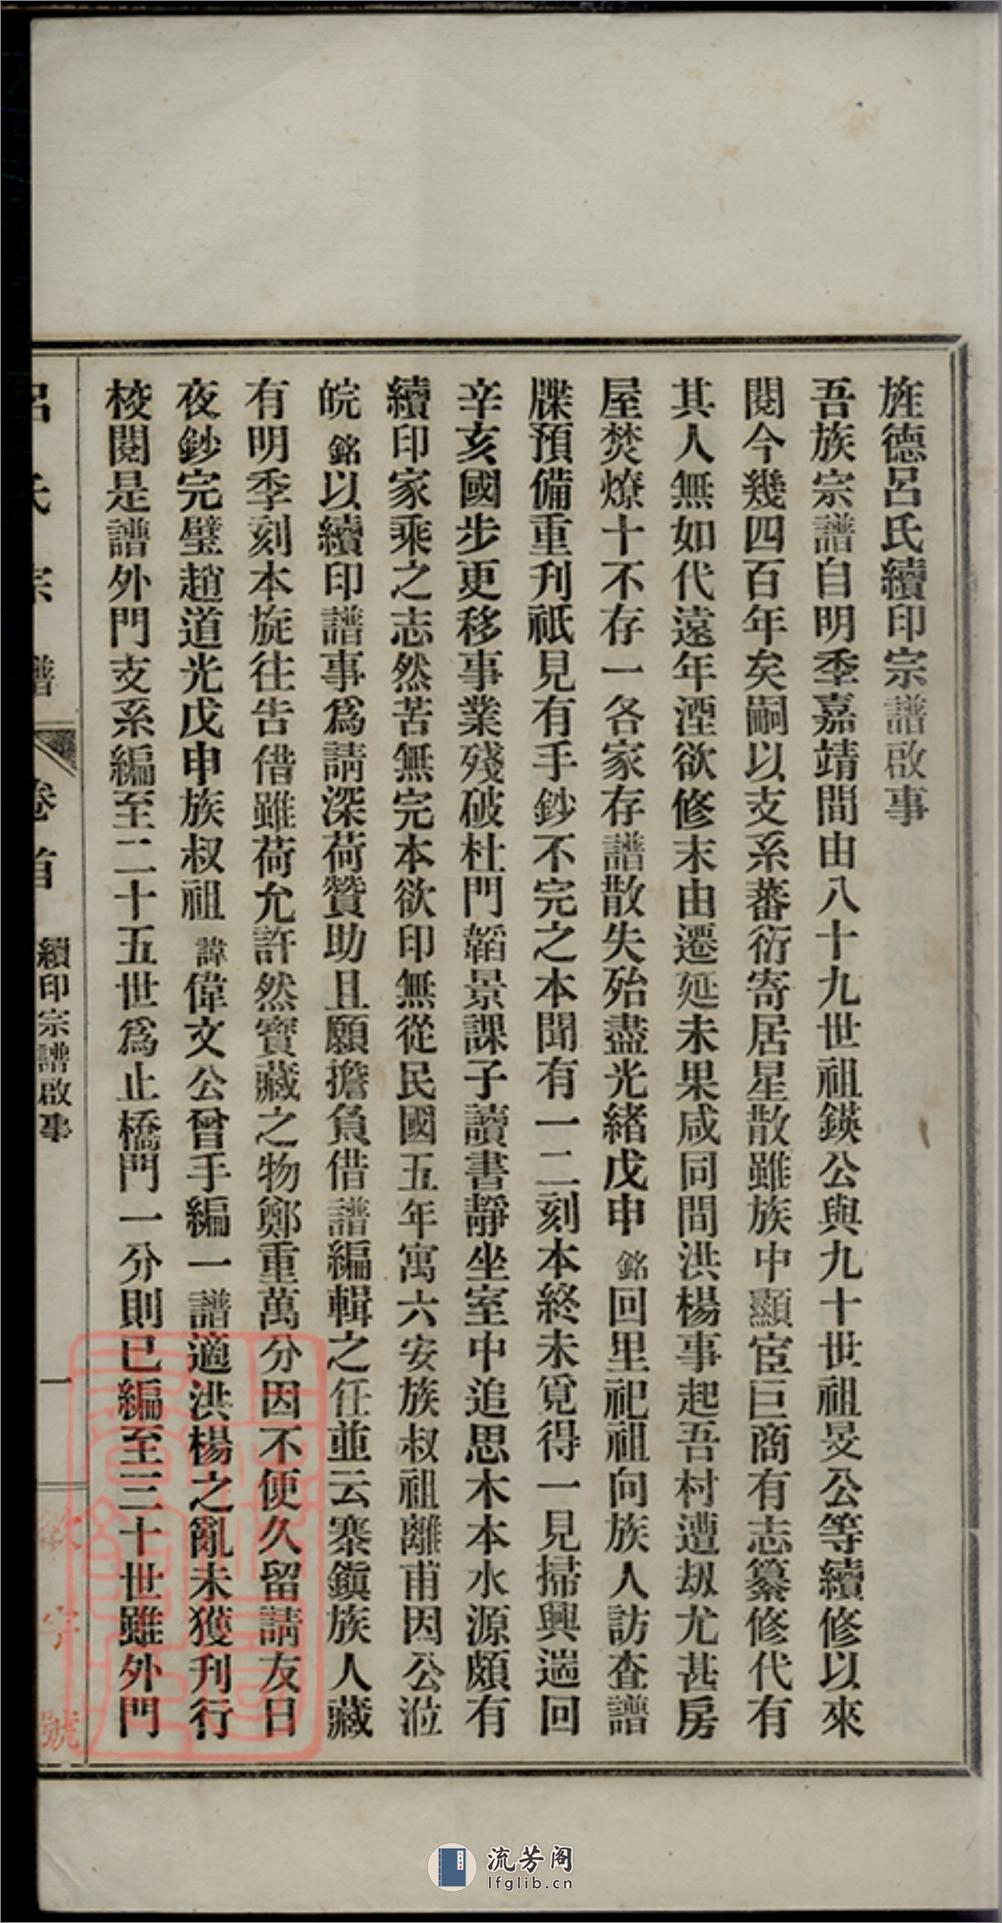 旌德呂氏續印宗譜啟事
吾族宗譜自明季嘉靖間由八十九世祖鍈公與九十世祖旻公等續修以來
閱今幾四百年矣嗣以支系蕃衍寄居星散雖族中顯宦巨商有志纂修代有
其人無如代遠年湮欲修末由遷延未果咸同間洪楊事起吾村遭刼尤甚房
屋焚燎十不存一各家存譜散失殆盡光緒戊申銘回里祀祖向族人訪查譜
牒預備重刋祇見有手鈔不完之本聞有一二刻本終未覓得一見掃興遄回
辛亥國步更移事業殘破杜門韜景課子讀書靜坐室中追思木本水源頗有
續印家乘之志然苦無完本欲印無從民國五年寓六安族叔祖離甫因公涖
皖銘以續印譜事爲請深荷贊助且願擔負借譜編輯之任並云寨鎭族人藏
有明季刻本旋往告借雖荷允許然寶藏之物鄭重萬分因不便久留請友日
夜鈔完璧趙道光戊申族叔祖諱偉文公曾手編一譜適洪楊之亂未獲刋行
校閱是譜外門支系編至二十五世爲止橋門一分則已編至三十世雖外門
呂氏宗譜 卷首 續印宗譜啟事 一
字號
流芳阁
lfglib.cn